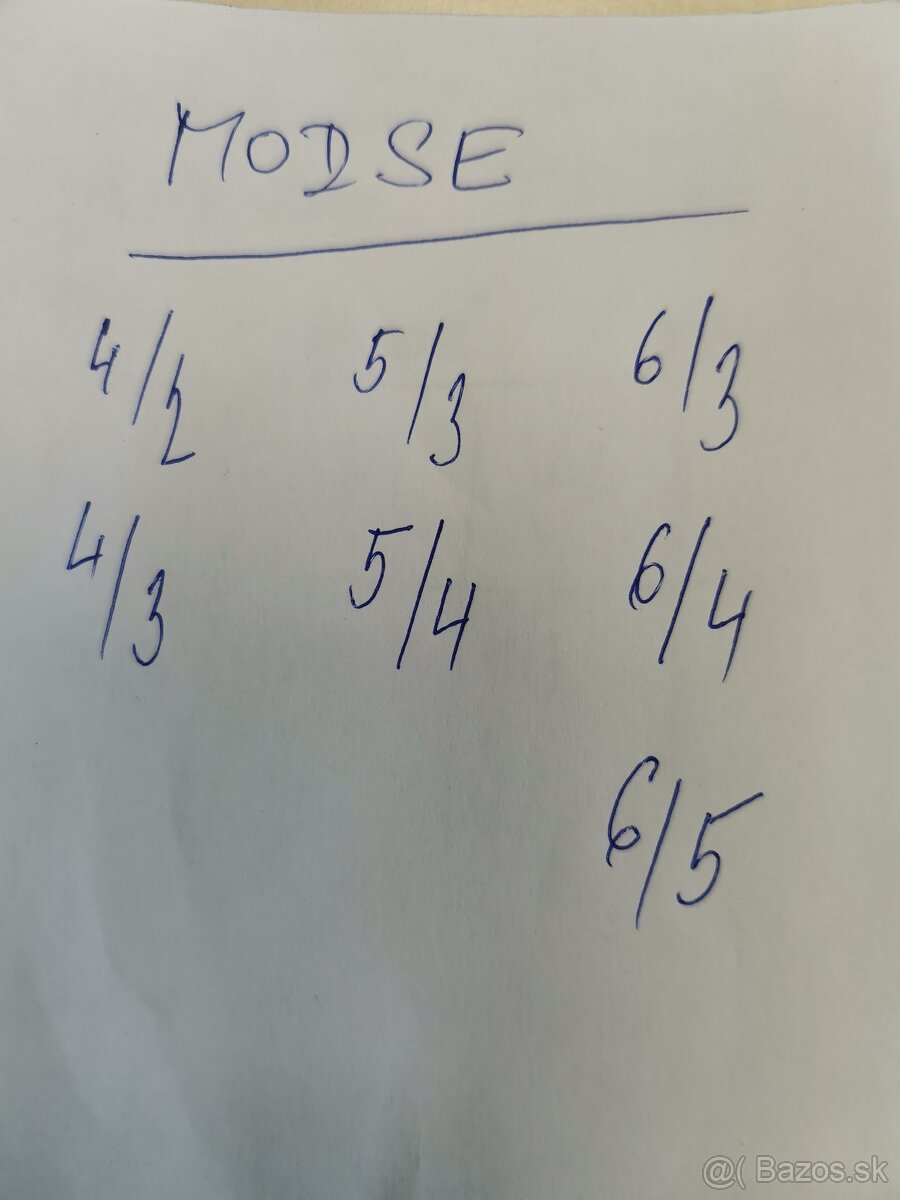 MODSE
4/2 5/3 6/3
4/3 5/4 6/4
6/5
@( Bazos.sk